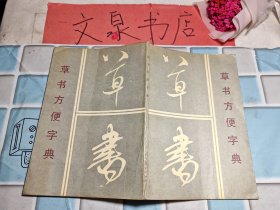 文泉书店
草书方便字典
草书
草书方便字典
草书